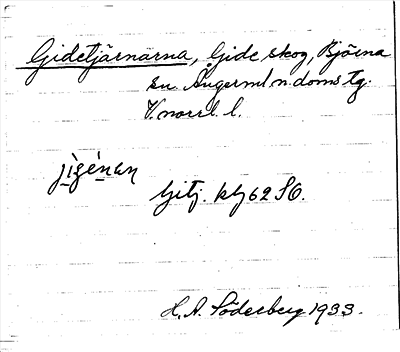 Gidetjärnarna, Gide skog, Björna
sn. Ångerml. n. doms tg.
V. norrl. l.
jìgénan
Gitj. kbl 62 SO.
H. A. Söderberg 1933.